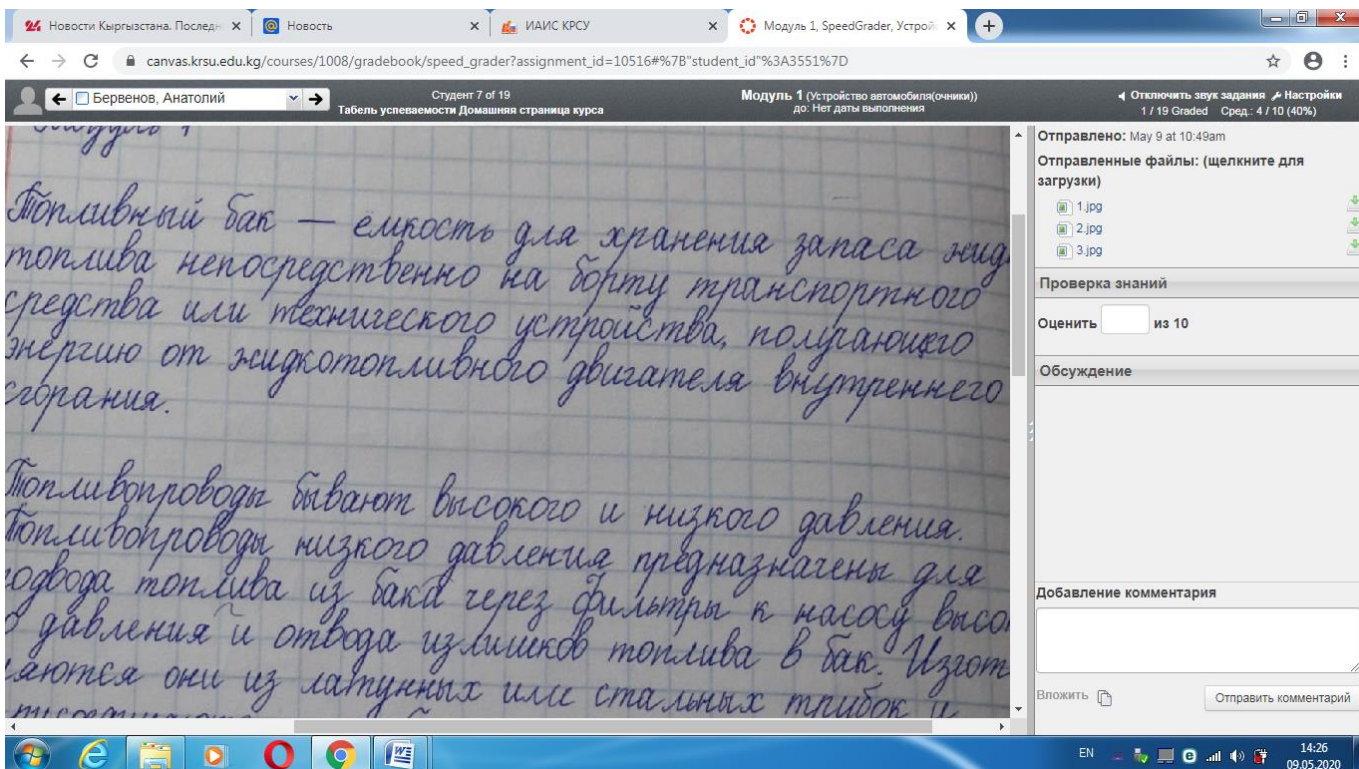 Новости Кыргызстана. Последн
Новость
ИАИС КРСУ
Модуль 1, SpeedGrader, Устрой
canvas.krsu.edu.kg/courses/1008/gradebook/speed_grader?assignment_id=10516#%7B"student_id"%3A3551%7D
Бервенов, Анатолий
Студент 7 of 19
Табель успеваемости Домашняя страница курса
Модуль 1 (Устройство автомобиля(очники))
до: Нет даты выполнения
Отключить звук задания Настройки
1 / 19 Graded Сред.: 4 / 10 (40%)
Модуль 1
Топливный бак — ёмкость для хранения запаса жид
топлива непосредственно на борту транспортного
средства или технического устройства, получающего
энергию от жидкотопливного двигателя внутреннего
сгорания.
Топливопроводы бывают высокого и низкого давления.
Топливопроводы низкого давления предназначены для
одвода топлива из бака через фильтры к насосу высо
о давления и отвода излишков топлива в бак. Изгот
ляются они из латунных или стальных трубок и
Отправлено: May 9 at 10:49am
Отправленные файлы: (щелкните для
загрузки)
1.jpg
2.jpg
3.jpg
Проверка знаний
Оценить из 10
Обсуждение
Добавление комментария
Вложить
Отправить комментарий
EN
14:26
09.05.2020